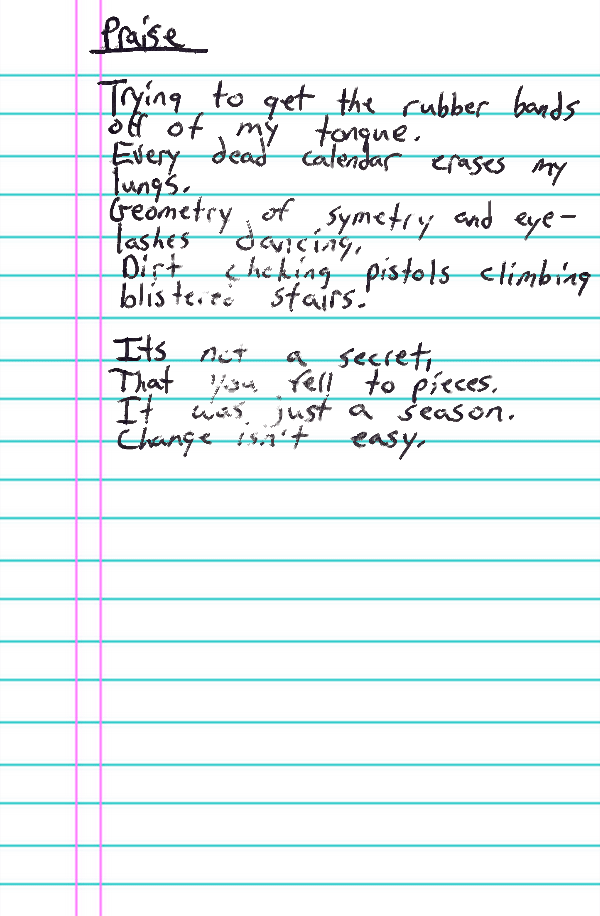 Praise
Trying to get the rubber bands
off of my tongue.
Every dead calendar erases my
lungs.
Geometry of symetry and eye-
lashes dancing.
Dirt choking pistols climbing
blistered stairs.
Its not a secret,
That you fell to pieces.
It was just a season.
Change isn't easy.